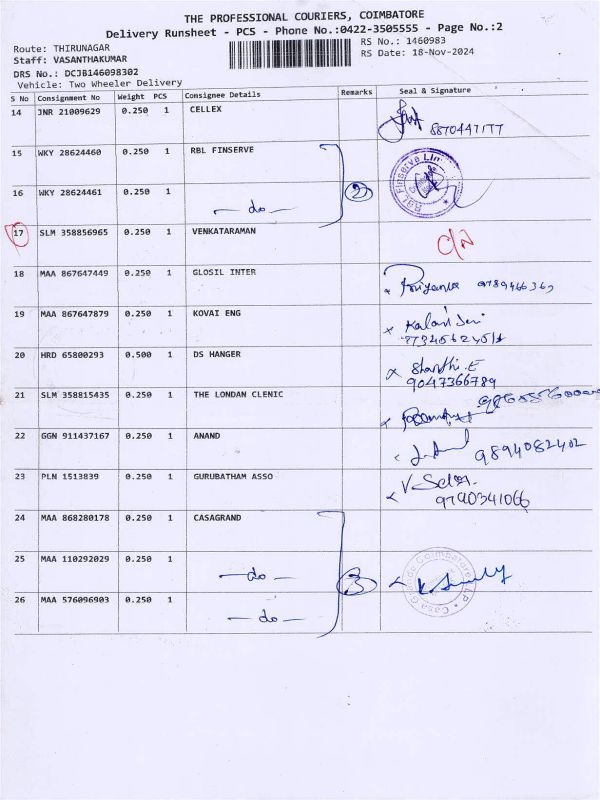 THE PROFESSIONAL COURIERS, COIMBATORE
Delivery Runsheet - PCS - Phone No.:0422-3505555 - Page No.:2
Route: THIRUNAGAR
RS No.: 1460983
Staff: VASANTHAKUMAR
RS Date: 18-Nov-2024
DRS No.: DCJB146098302
Vehicle: Two Wheeler Delivery
S No Consignment No Weight PCS Consignee Details Remarks Seal & Signature
14 JNR 21009629 0.250 1 CELLEX
8870447177
15 WKY 28624460 0.250 1 RBL FINSERVE
16 WKY 28624461 0.250 1 2
- do -
RBL Finserve Lim
17 SLM 358856965 0.250 1 VENKATARAMAN
18 MAA 867647449 0.250 1 GLOSIL INTER
x Priyanka
19 MAA 867647879 0.250 1 KOVAI ENG
x
20 HRD 65800293 0.500 1 DS HANGER
x Shanthi.E
9047366789
21 SLM 358815435 0.250 1 THE LONDAN CLENIC
22 GGN 911437167 0.250 1 ANAND
9894082402
23 PLN 1513839 0.250 1 GURUBATHAM ASSO
V. Selva.
9790341066
24 MAA 868280178 0.250 1 CASAGRAND
25 MAA 110292029 0.250 1
- do - 3
26 MAA 576096903 0.250 1
- do -